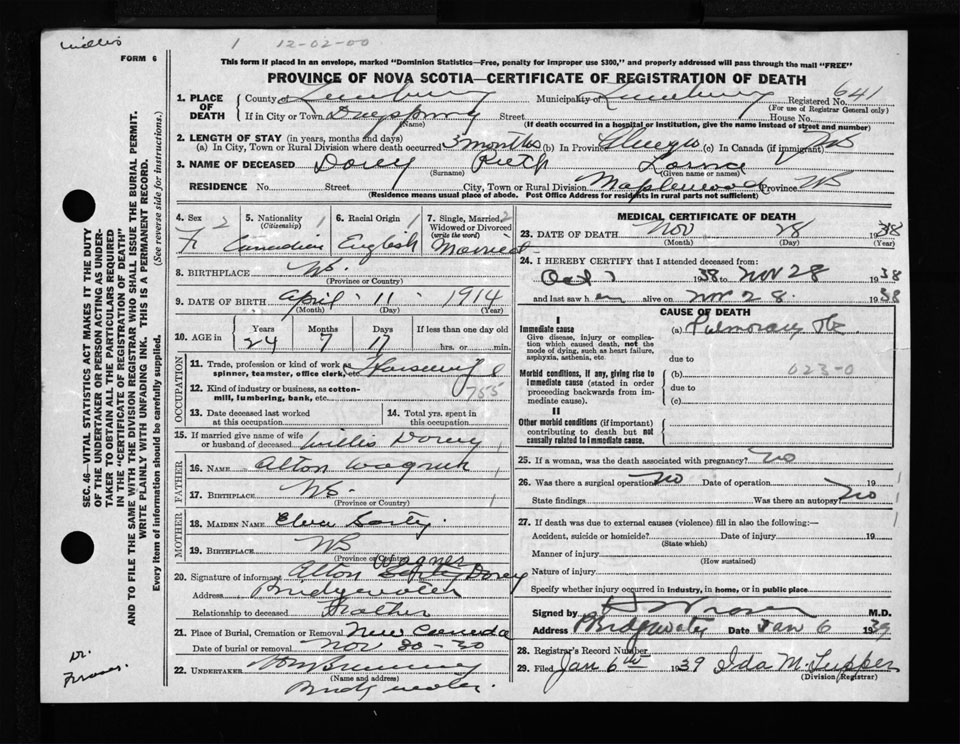 Willis
1 12-02-00
FORM 6
This form if placed in an envelope, marked "Dominion Statistics—Free, penalty for improper use $300," and properly addressed will pass through the mail "FREE"
PROVINCE OF NOVA SCOTIA—CERTIFICATE OF REGISTRATION OF DEATH
1. PLACE OF DEATH
County of Lunenburg Municipality of Lunenburg Registered No. 641
(For use of Registrar General only)
If in City or Town Street House No.
(Name) (If death occurred in a hospital or institution, give the name instead of street and number)
2. LENGTH OF STAY (in years, months and days)
(a) In City, Town or Rural Division where death occurred 3 months (b) In Province Always (c) In Canada (if immigrant)
3. NAME OF DECEASED Dorey Ruth
(Surname) (Given name or names)
RESIDENCE No. Street City, Town or Rural Division Maplewood Province NS
(Residence means usual place of abode. Post Office Address for residents in rural parts not sufficient)
4. Sex 2 5. Nationality 1 6. Racial Origin 1 7. Single, Married, 2
(Citizenship) Widowed or Divorced
(write the word)
F Canadian English Married
8. BIRTHPLACE NS.
(Province or Country)
9. DATE OF BIRTH April 11 1914
(Month) (Day) (Year)
10. AGE in Years Months Days If less than one day old
24 7 17 hrs. or min.
OCCUPATION
11. Trade, profession or kind of work as spinner, teamster, office clerk, etc. Housewife
12. Kind of industry or business, as cotton-mill, lumbering, bank, etc. 755
13. Date deceased last worked at this occupation
14. Total yrs. spent in this occupation
15. If married give name of wife or husband of deceased Willis Dorey 1
FATHER
16. NAME Alton Wagner 1
17. BIRTHPLACE NS. 1
(Province or Country)
MOTHER
18. MAIDEN NAME
19. BIRTHPLACE NS
(Province or Country)
20. Signature of informant Alton Wagner Dorey
Address Bridgewater
Relationship to deceased Father
21. Place of Burial, Cremation or Removal New Canada
Date of burial or removal Nov 30-30
22. UNDERTAKER
(Name and address)
Bridgewater.
MEDICAL CERTIFICATE OF DEATH
23. DATE OF DEATH Nov 28 1938
(Month) (Day) (Year)
24. I HEREBY CERTIFY that I attended deceased from:
Oct 7 1938 to Nov 28 1938
and last saw her alive on Nov 28. 1938
CAUSE OF DEATH
I
Immediate cause (a) Pulmonary Tb
Give disease, injury or complication which caused death, not the mode of dying, such as heart failure, asphyxia, asthenia, etc.
due to
023-0
Morbid conditions, if any, giving rise to immediate cause (stated in order proceeding backwards from immediate cause). (b)
due to
(c)
II
Other morbid conditions (if important) contributing to death but not causally related to immediate cause.
25. If a woman, was the death associated with pregnancy? No
26. Was there a surgical operation No Date of operation 19
State findings Was there an autopsy? No
27. If death was due to external causes (violence) fill in also the following:—
Accident, suicide or homicide? Date of injury 19
(State which)
Manner of injury
(How sustained)
Nature of injury
Specify whether injury occurred in industry, in home, or in public place
Signed by M.D.
Address Bridgewater Date Jan 6 1939
28. Registrar's Record Number
29. Filed Jan 6th 1939 Ida M. Tupper
(Division Registrar)
SEC. 46—VITAL STATISTICS ACT MAKES IT THE DUTY
OF THE UNDERTAKER OR PERSON ACTING AS UNDER-
TAKER TO OBTAIN ALL THE PARTICULARS REQUIRED
IN THE "CERTIFICATE OF REGISTRATION OF DEATH"
AND TO FILE THE SAME WITH THE DIVISION REGISTRAR WHO SHALL ISSUE THE BURIAL PERMIT.
WRITE PLAINLY WITH UNFADING INK. THIS IS A PERMANENT RECORD.
Every item of information should be carefully supplied. (See reverse side for instructions.)
Dr.